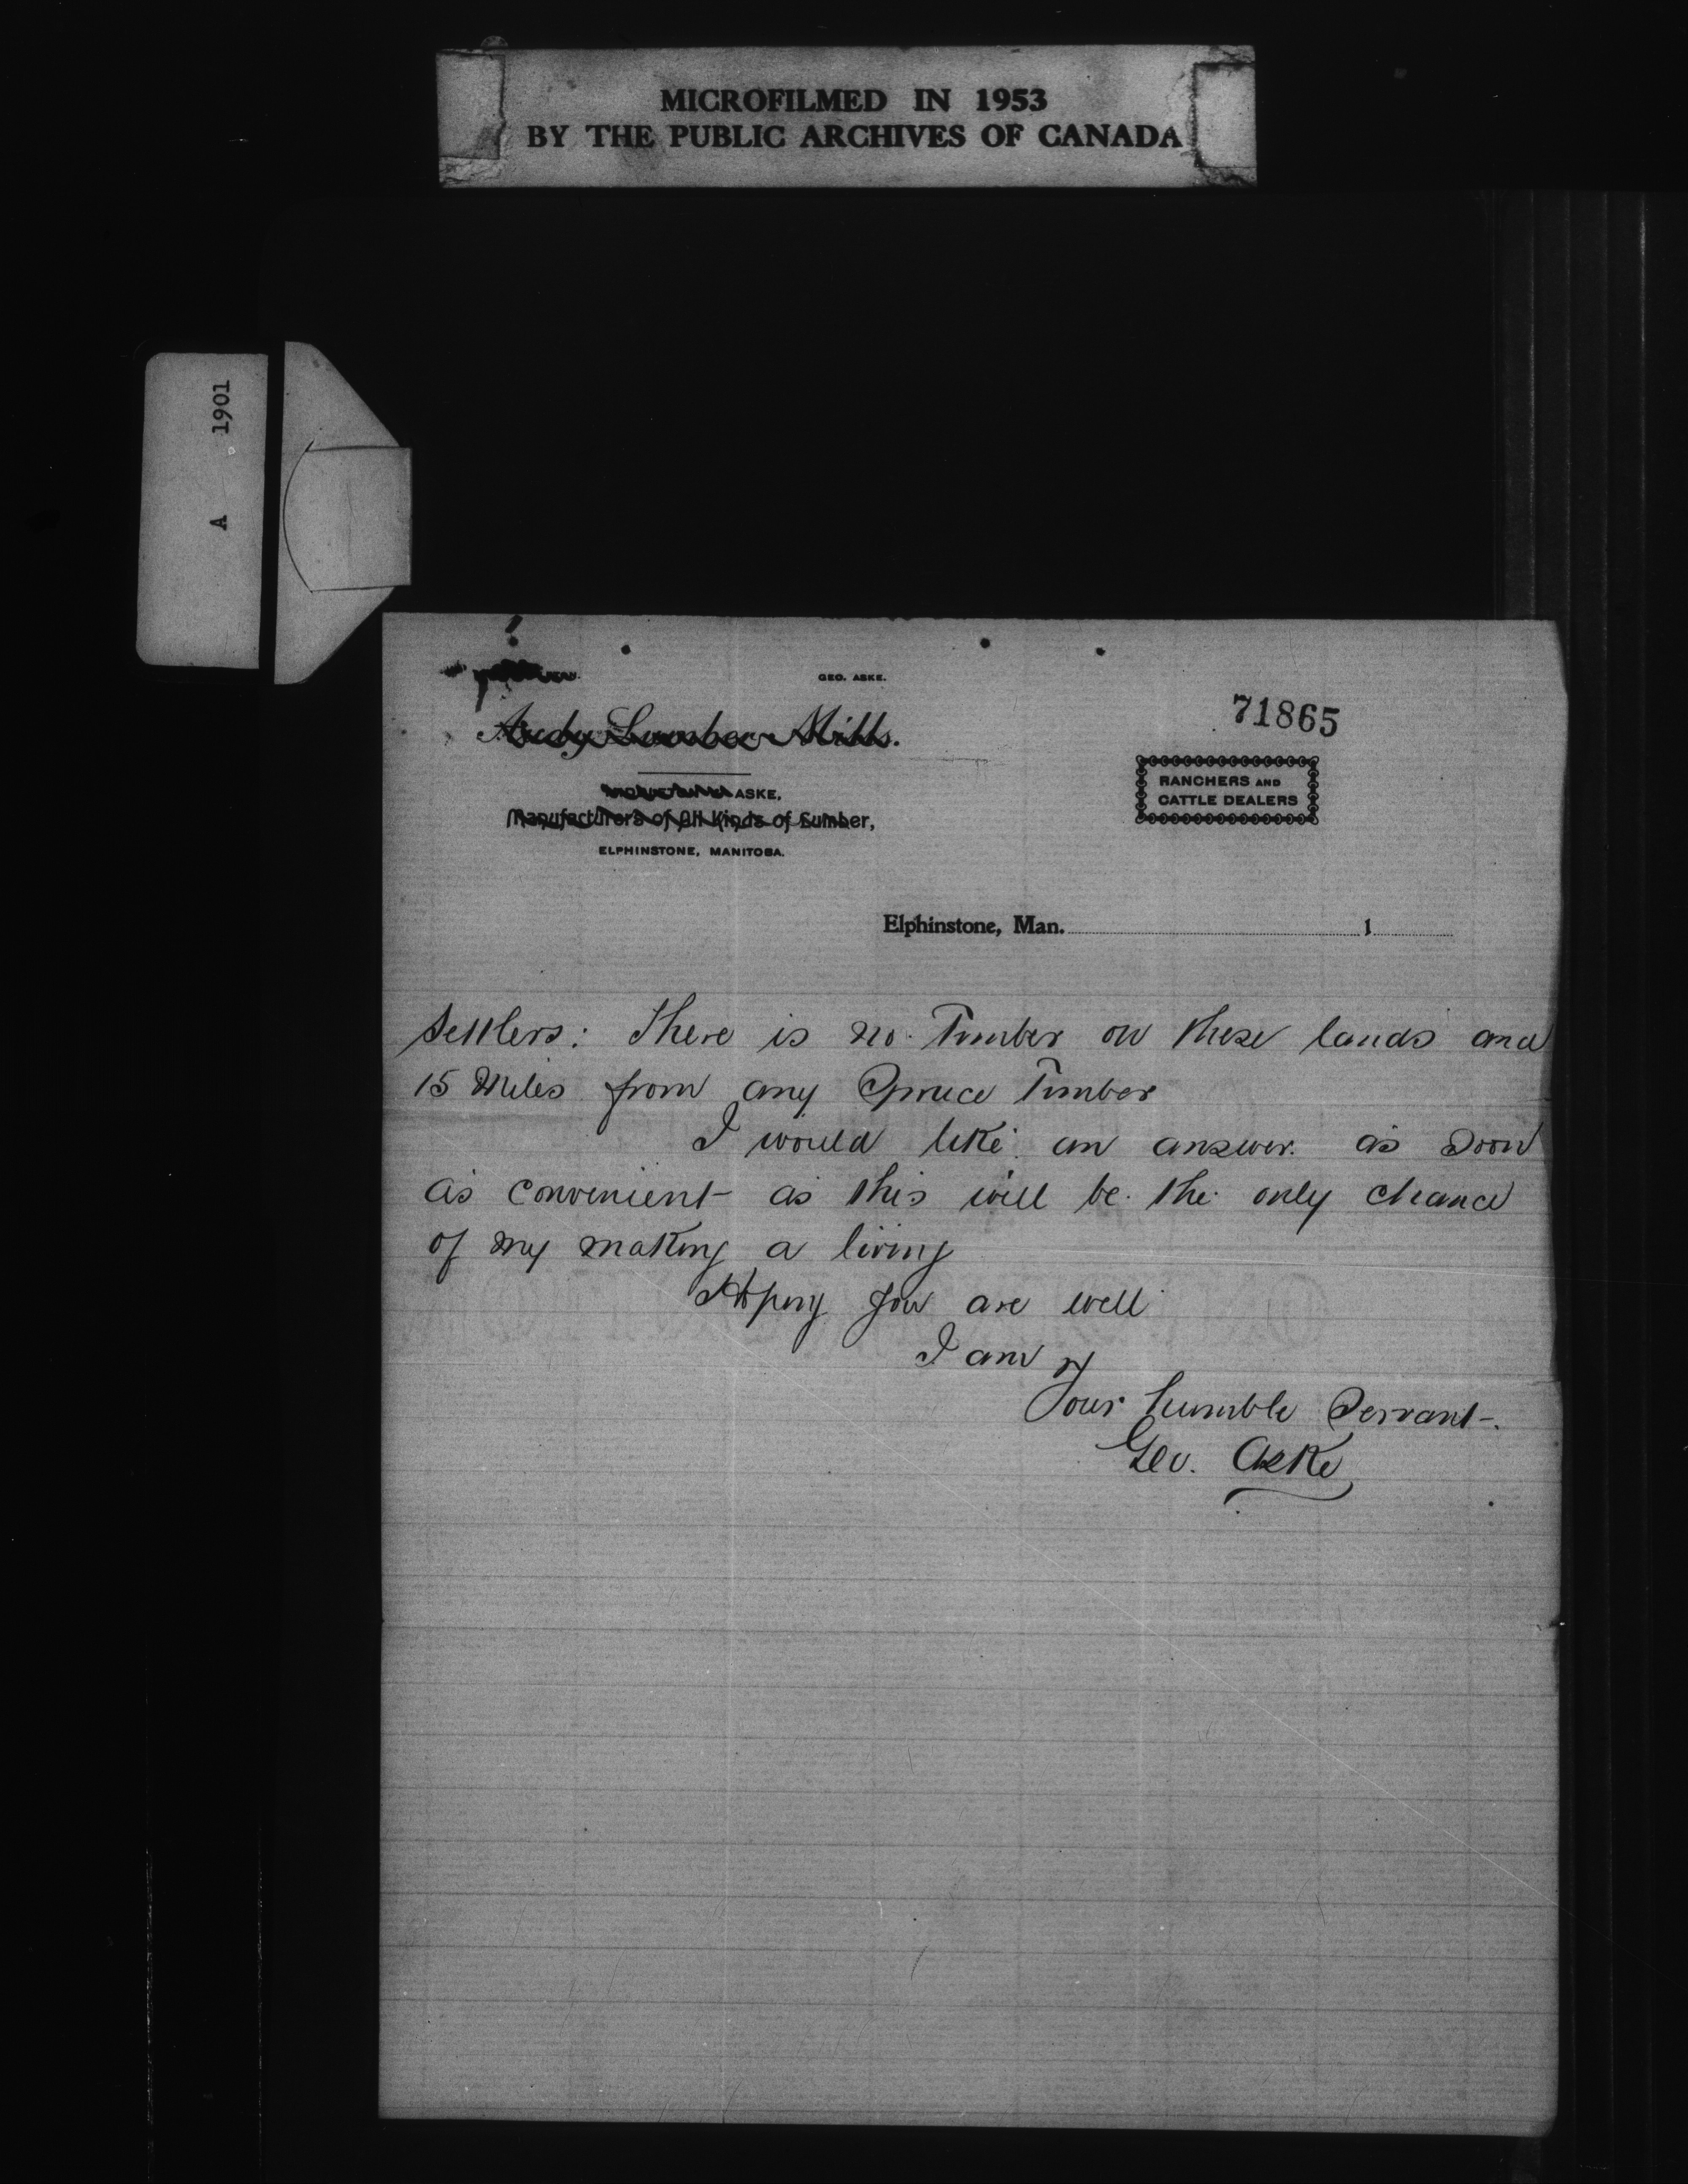 MICROFILMED IN 1953
BY THE PUBLIC ARCHIVES OF CANADA
A 1901
GEO. ASKE.
71865
Lumber Mills.
RANCHERS AND
CATTLE DEALERS
ASKE,
Manufacturers of All Kinds of Lumber,
ELPHINSTONE, MANITOBA.
Elphinstone, Man. 1
Settlers: There is no Timber on these lands and
15 Miles from any Spruce Timber
I would like an answer. as soon
as convenient as this will be the only chance
of my making a living
Hoping you are well
I am
Your humble Servant.
Geo. Aske